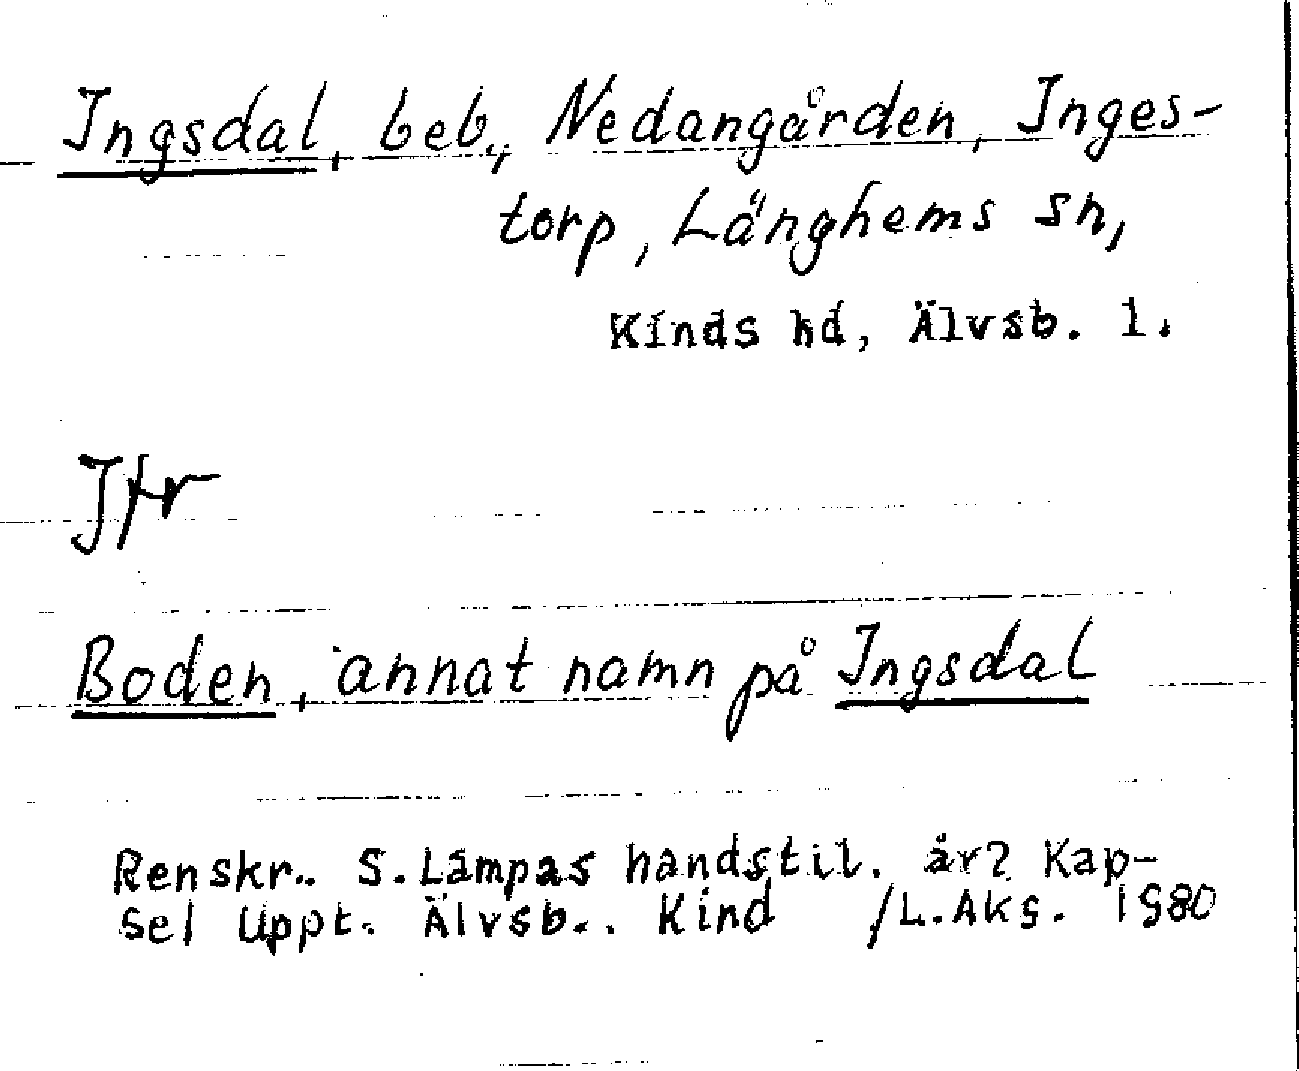 Ingsdal, beb., Nedangården, Inges-
torp, Länghems sn,
Kinds hd, Älvsb. l.
Jfr
Boden, annat namn på Ingsdal
Renskr.. S.Lampas handstil. år? Kap-
sel Uppt. Älvsb.. Kind /L.Aks. 1980